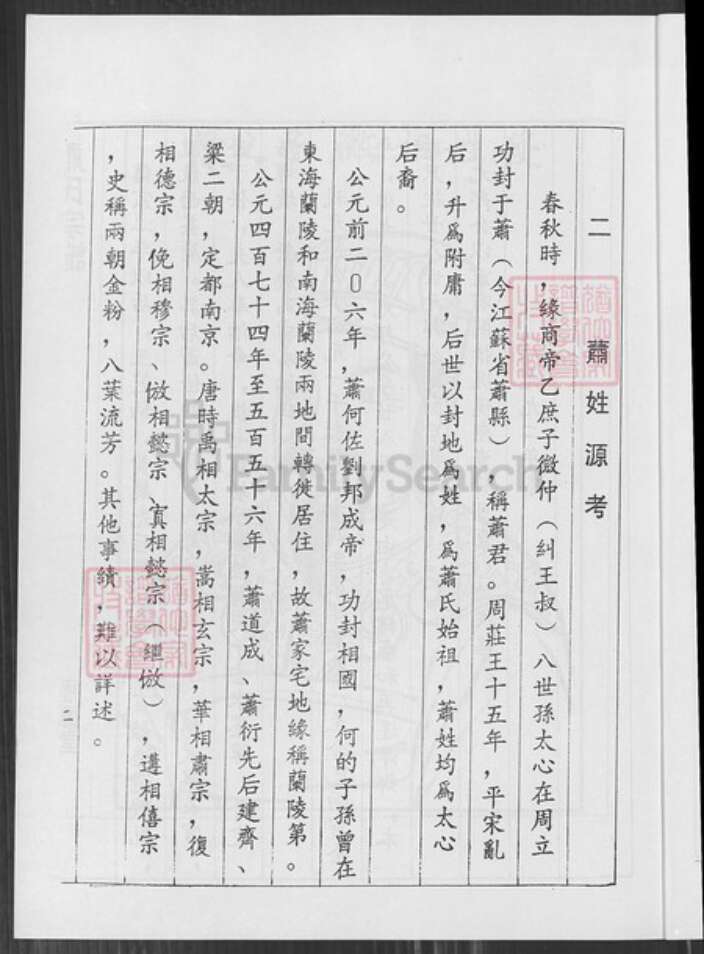 二 蕭姓源考
春秋時，緣商帝乙庶子微仲（糾王叔）八世孫太心在周立
功封于蕭（今江蘇省蕭縣），稱蕭君。周莊王十五年，平宋亂
后，升爲附庸，后世以封地爲姓，爲蕭氏始祖，蕭姓均爲太心
后裔。
公元前二0六年，蕭何佐劉邦成帝，功封相國，何的子孫曾在
東海蘭陵和南海蘭陵兩地間轉徙居住，故蕭家宅地緣稱蘭陵第。
公元四百七十四年至五百五十六年，蕭道成、蕭衍先后建齊、
梁二朝，定都南京。唐時禹相太宗，嵩相玄宗，華相肅宗，復
相德宗，俛相穆宗、倣相懿宗、寘相懿宗（繼倣），遘相僖宗
，史稱兩朝金粉，八葉流芳。其他事績，難以詳述。
FamilySearch